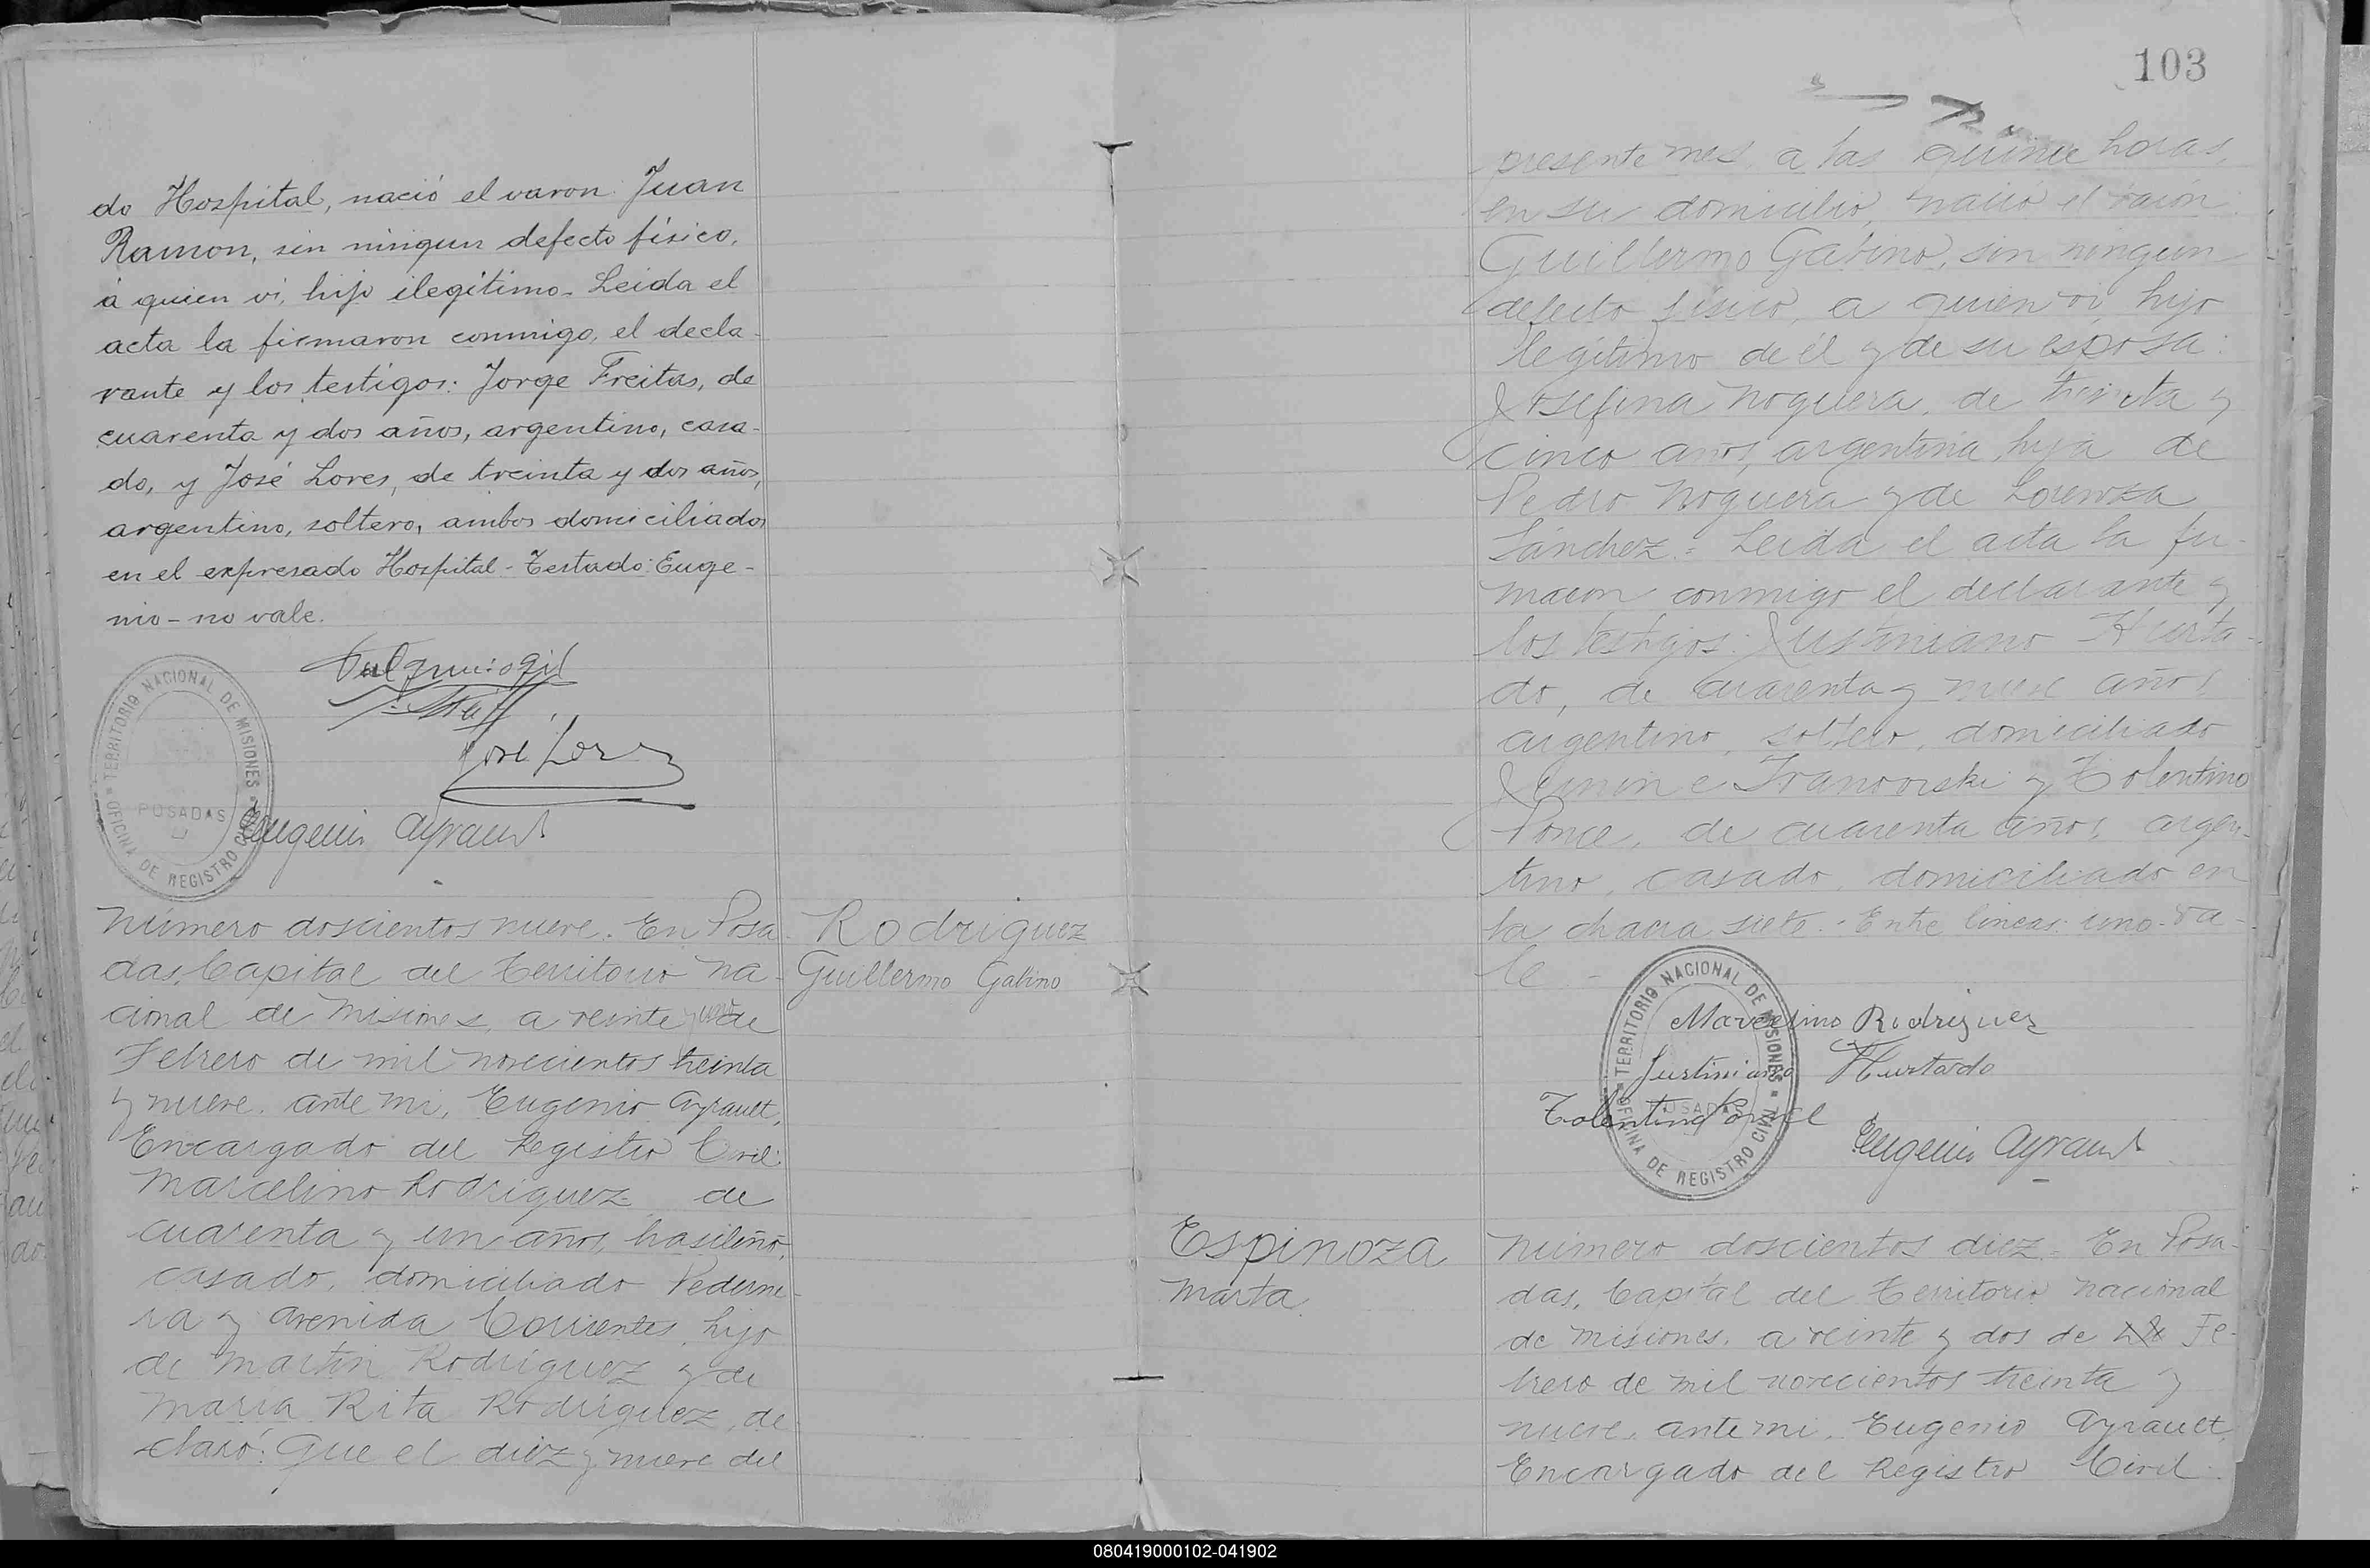 do Hospital, nació el varon: Juan
Ramon, sin ningun defecto físico,
á quien vi, hijo ilegítimo. Leida el
acta la firmaron conmigo, el decla-
rante y los testigos: Jorge Freitas, de
cuarenta y dos años, argentino, casa-
do, y José Lores, de treinta y dos años,
argentino, soltero, ambos domiciliados
en el expresado Hospital - Testado: Euge-
nio - no vale.
José Lores
TERRITORIO NACIONAL DE MISIONES
OFICINA DE REGISTRO CIVIL
POSADAS
Eugenio Ayrault
Rodriguez
Guillermo Gabino
Número doscientos nueve. En Posa-
das, Capital del Territorio Na-
cional de Misiones, a veinte y uno de
Febrero de mil novecientos treinta
y nueve, ante mi, Eugenio Ayrault,
Encargado del Registro Civil:
Marcelino Rodriguez, de
cuarenta y un años, brasileño,
casado, domiciliado Pederne-
ra y Avenida Corrientes, hijo
de Martín Rodríguez y de
María Rita Rodríguez, de-
claró: Que el diez y nueve del
103
presente mes, a las quince horas,
en su domicilio, nació el varón
Guillermo Gabino, sin ningun
defecto físico, a quien vi, hijo
legítimo de él y de su esposa:
Josefina Noguera, de treinta y
cinco años, argentina, hija de
Pedro Noguera y de Lorenza
Sánchez = Leida el acta la fir-
maron conmigo el declarante y
los testigos: Justiniano Hurta-
do, de cuarenta y nueve años,
argentino, soltero, domiciliado
Junin e Ivanovski y Tolentino
Ponce, de cuarenta años, argen-
tino, casado, domiciliado en
la chacra siete. - Entre líneas: uno - va-
le -
TERRITORIO NACIONAL DE MISIONES
OFICINA DE REGISTRO CIVIL
POSADAS
Marcelino Rodriguez
Justiniano Hurtado
Tolentino Ponce
Eugenio Ayrault
Espinoza
Marta
Número doscientos diez = En Posa-
das, Capital del Territorio Nacional
de Misiones, a veinte y dos de Fe-
brero de mil novecientos treinta y
nueve, ante mi, Eugenio Ayrault,
Encargado del Registro Civil:
080419000102-041902